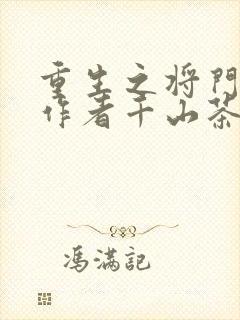 重生之将門
作者千山茶
馮滿記